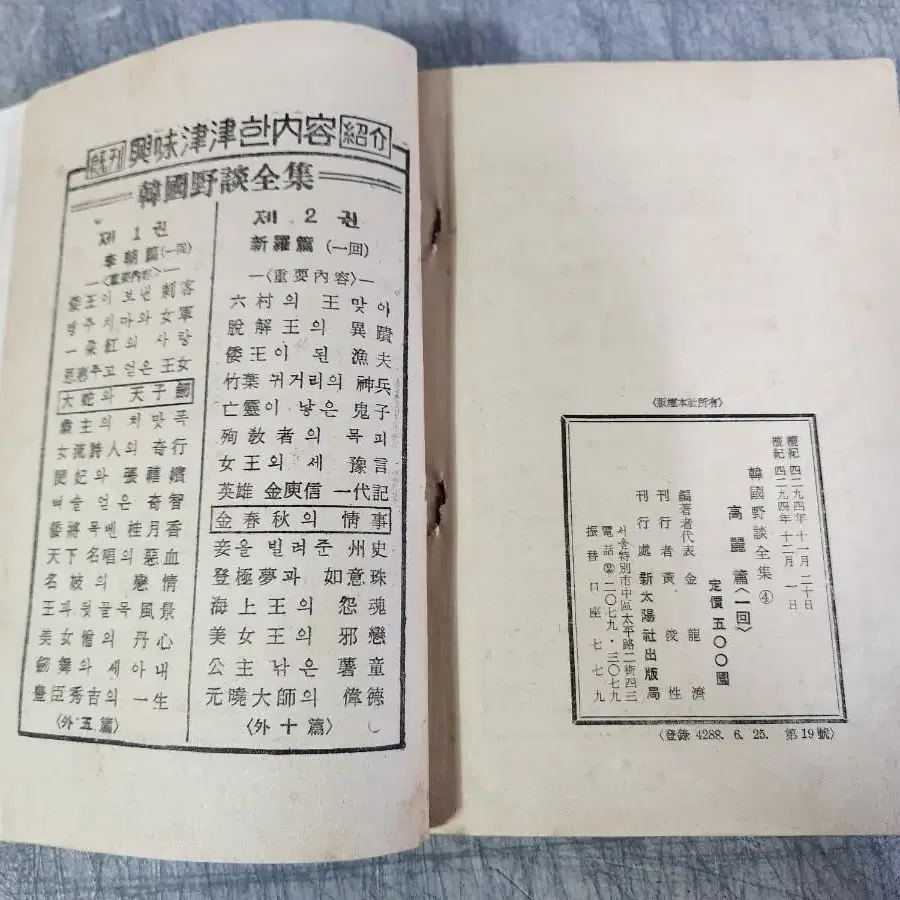 旣刊 興味津津한內容 紹介
韓國野談全集
제 1 권
李朝篇(一回)
—<重要內容>—
倭王이 보낸 刺客
행주치마와 女軍
一朶紅의 사랑
恩惠주고 얻은 王女
大蛇와 天子劒
의 치맛폭
女流詩人의 奇行
閔妃와 張禧嬪
벼슬 얻은 奇智
倭將목벤 桂月香
天下 名唱의 惡血
名妓의 戀情
王과 뒷골목 風景
美女僧의 丹心
劒舞와 세아내
豊臣秀吉의 一生
〈外五篇〉
제 2 권
新羅篇 (一回)
—〈重要內容〉—
六村의 王맞이
脫解王의 異蹟
倭王이 된 漁夫
竹葉 귀거리의 神兵
亡靈이 낳은 鬼子
殉敎者의 목피
女王의 세 豫言
英雄 金庾信 一代記
金春秋의 情事
妾을 빌려준 州史
登極夢과 如意珠
海上王의 怨魂
美女王의 邪戀
公主 낚은 薯童
元曉大師의 偉德
〈外十篇〉
〈版權本社所有〉
檀紀 四二九四年 十一月 二十日
檀紀 四二九四年 十二月 一日
韓國野談全集④
高麗篇〈一回〉
定價 五〇〇圜
編著者代表 金龍濟
刊行者 黃俊性
刊行處 新太陽社出版局
서울特別市中區太平路二街四三
電話②二〇七九・三〇七九
振替口座七七九
〈登錄 4288. 6. 25. 第19號〉